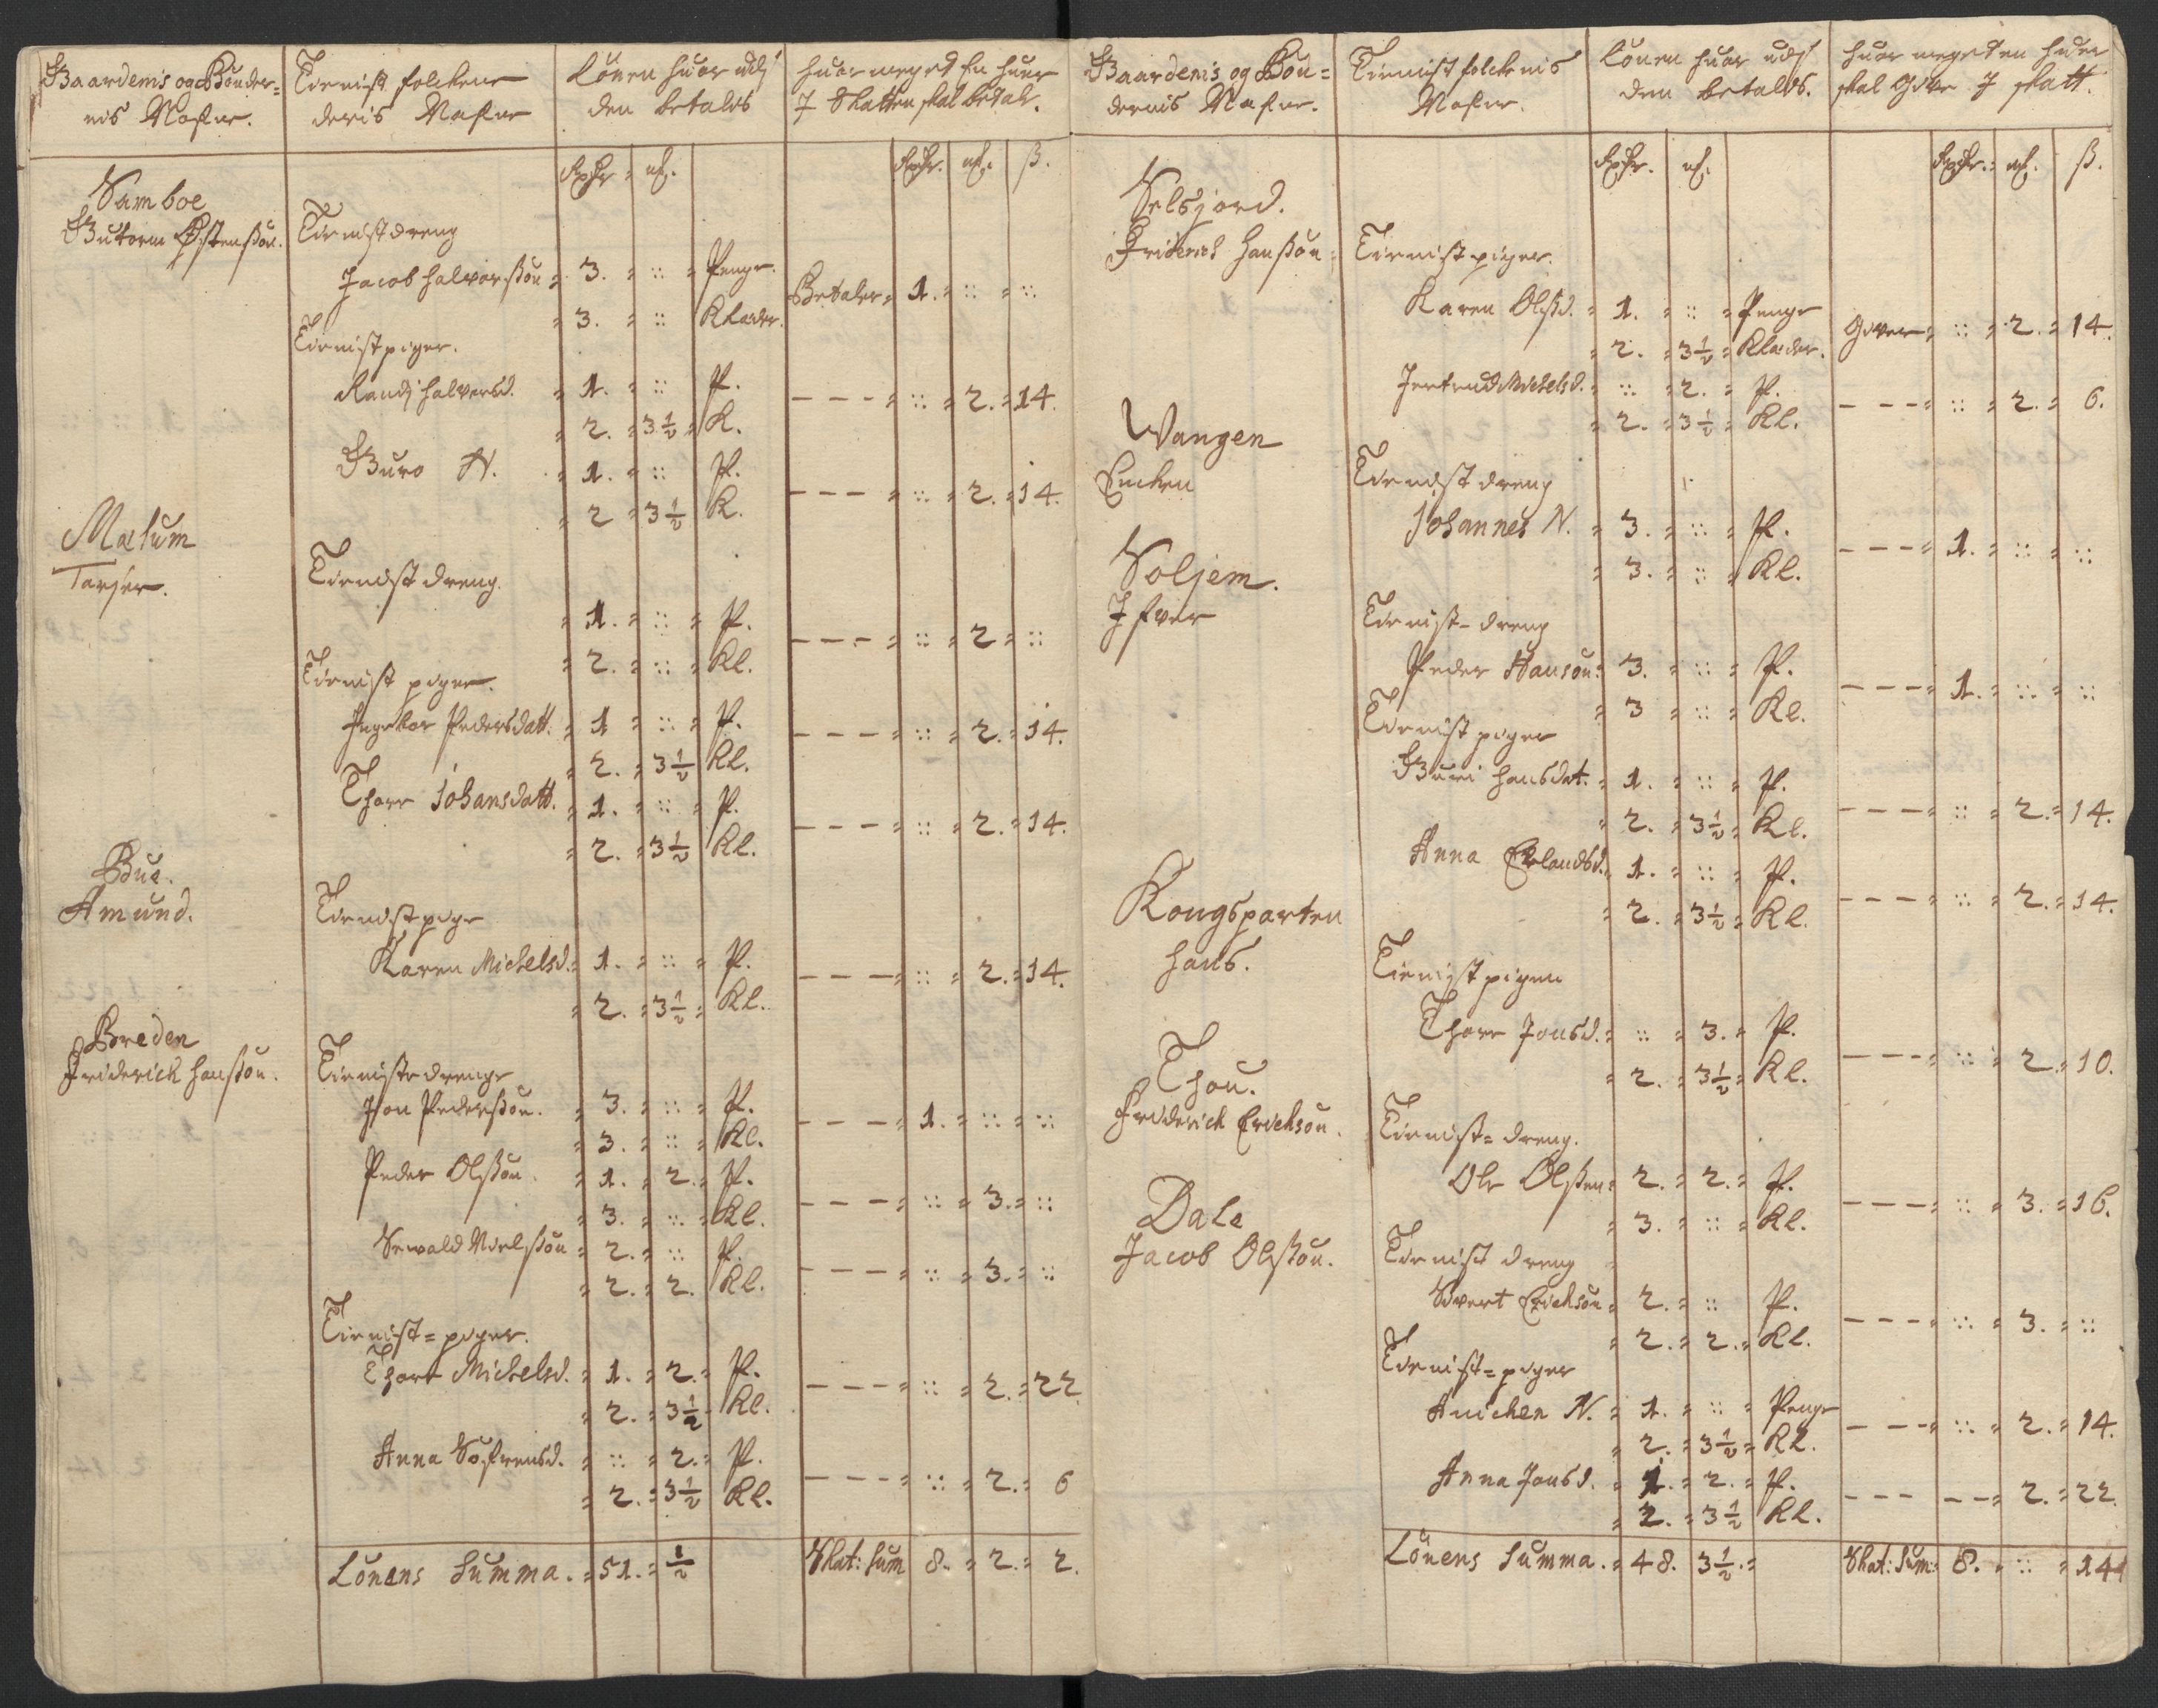 Gaardenis og Bönder=
nis Nafne.
Tienist folckene
deris Nafne
Lönen huor udj
den betalis
huor meget En huer
J Skatten skal betale.
Rixdr. mk.
Rixdr. mk. ß.
Samboe
Gutorm Østensøn.
Tienistdreng
Jacob halvorsøn 3. :: Penge.
Betaler 1. :: ::
3. :: Klæder.
Tienistpiger.
Randj halvorsd. 1. :: P.
--- :: 2. 14.
2. 3½ K.
Guro N. 1. :: P.
--- :: 2. 14.
2 3½ K.
Mælum
Tarjer.
Tienist dreng.
1. :: P.
--- :: 2 ::
2. :: Kl.
Tienist piger.
Ingebor Pedersdatt. 1 :: P.
--- :: 2. 14.
2. 3½ Kl.
Thore Johansdatt. 1. :: P.
--- :: 2. 14.
2. 3½ Kl.
Bue.
Amund.
Tienistpige
Karen Michelsd. 1. :: P.
--- :: 2. 14.
2. 3½ Kl.
Breden
Friderich hansøn.
Tieniste drenge
Jon Pedersøn. 3. :: P.
--- 1. :: ::
3. :: Kl.
Peder Olsøn. 1. 2. P.
--- :: 3. ::
3. :: Kl.
Sewald Nielsøn 2. :: P.
--- :: 3. ::
2. 2. Kl.
Tienist=piger.
Thore Michelsd. 1. 2. P.
--- :: 2. 22
2. 3½ Kl.
Anna Søfrensd. :: 2. P.
--- :: 2. 6
2. 3½ Kl.
Lönens Summa. 51. ½
Skat: Sum 8. 2. 2.
Gaardenis og Bön=
dernis Nafne.
Tienist folckenis
Nafne.
Lönen huor udj
den betalis.
huor meget en huer
skal Give J skatt.
Rixdr. mk.
Rixdr. mk. ß.
Selsjord.
Friderich hansøn
Tienistpiger.
Karen Olsd. 1. :: Penge
Giver :: 2. 14.
2. 3½ Klæder.
Jertrud Michelsd. :: 2. P.
--- :: 2. 6.
2. 3½ Kl.
Wangen
Encken
Tienist dreng
Johannes N. 3. :: P.
--- 1. :: ::
3. :: Kl.
Soljem.
Jfver
Tienist-dreng
Peder Hansøn 3. :: P.
--- 1. :: ::
3 :: Kl.
Tienist piger
Guri hansdat. 1. :: P.
--- :: 2. 14.
2. 3½ Kl.
Anna Erlandsd. 1. :: P.
--- :: 2. 14.
2. 3½ Kl.
Kongsparten
hans.
Tienist pigen
Thore Jonsd. :: 3. P.
--- :: 2. 10.
2. 3½ Kl.
Thou.
Friderich Erichsøn.
Tienist=dreng.
Ole Olsten 2. 2. P.
--- :: 3. 16.
3. :: Kl.
Dale
Jacob Olsøn.
Tienist dreng
Sivert Erichsøn 2. :: P.
--- :: 3. ::
2. 2. Kl.
Tienist=piger
Anichen N. 1. :: Penge
--- :: 2. 14.
2. 3½ Kl.
Anna Jonsd. 1. 2. P.
--- -- 2. 22.
2. 3½ Kl.
Lönens Summa. 48. 3½.
Skat: Sum: 8. :: 14